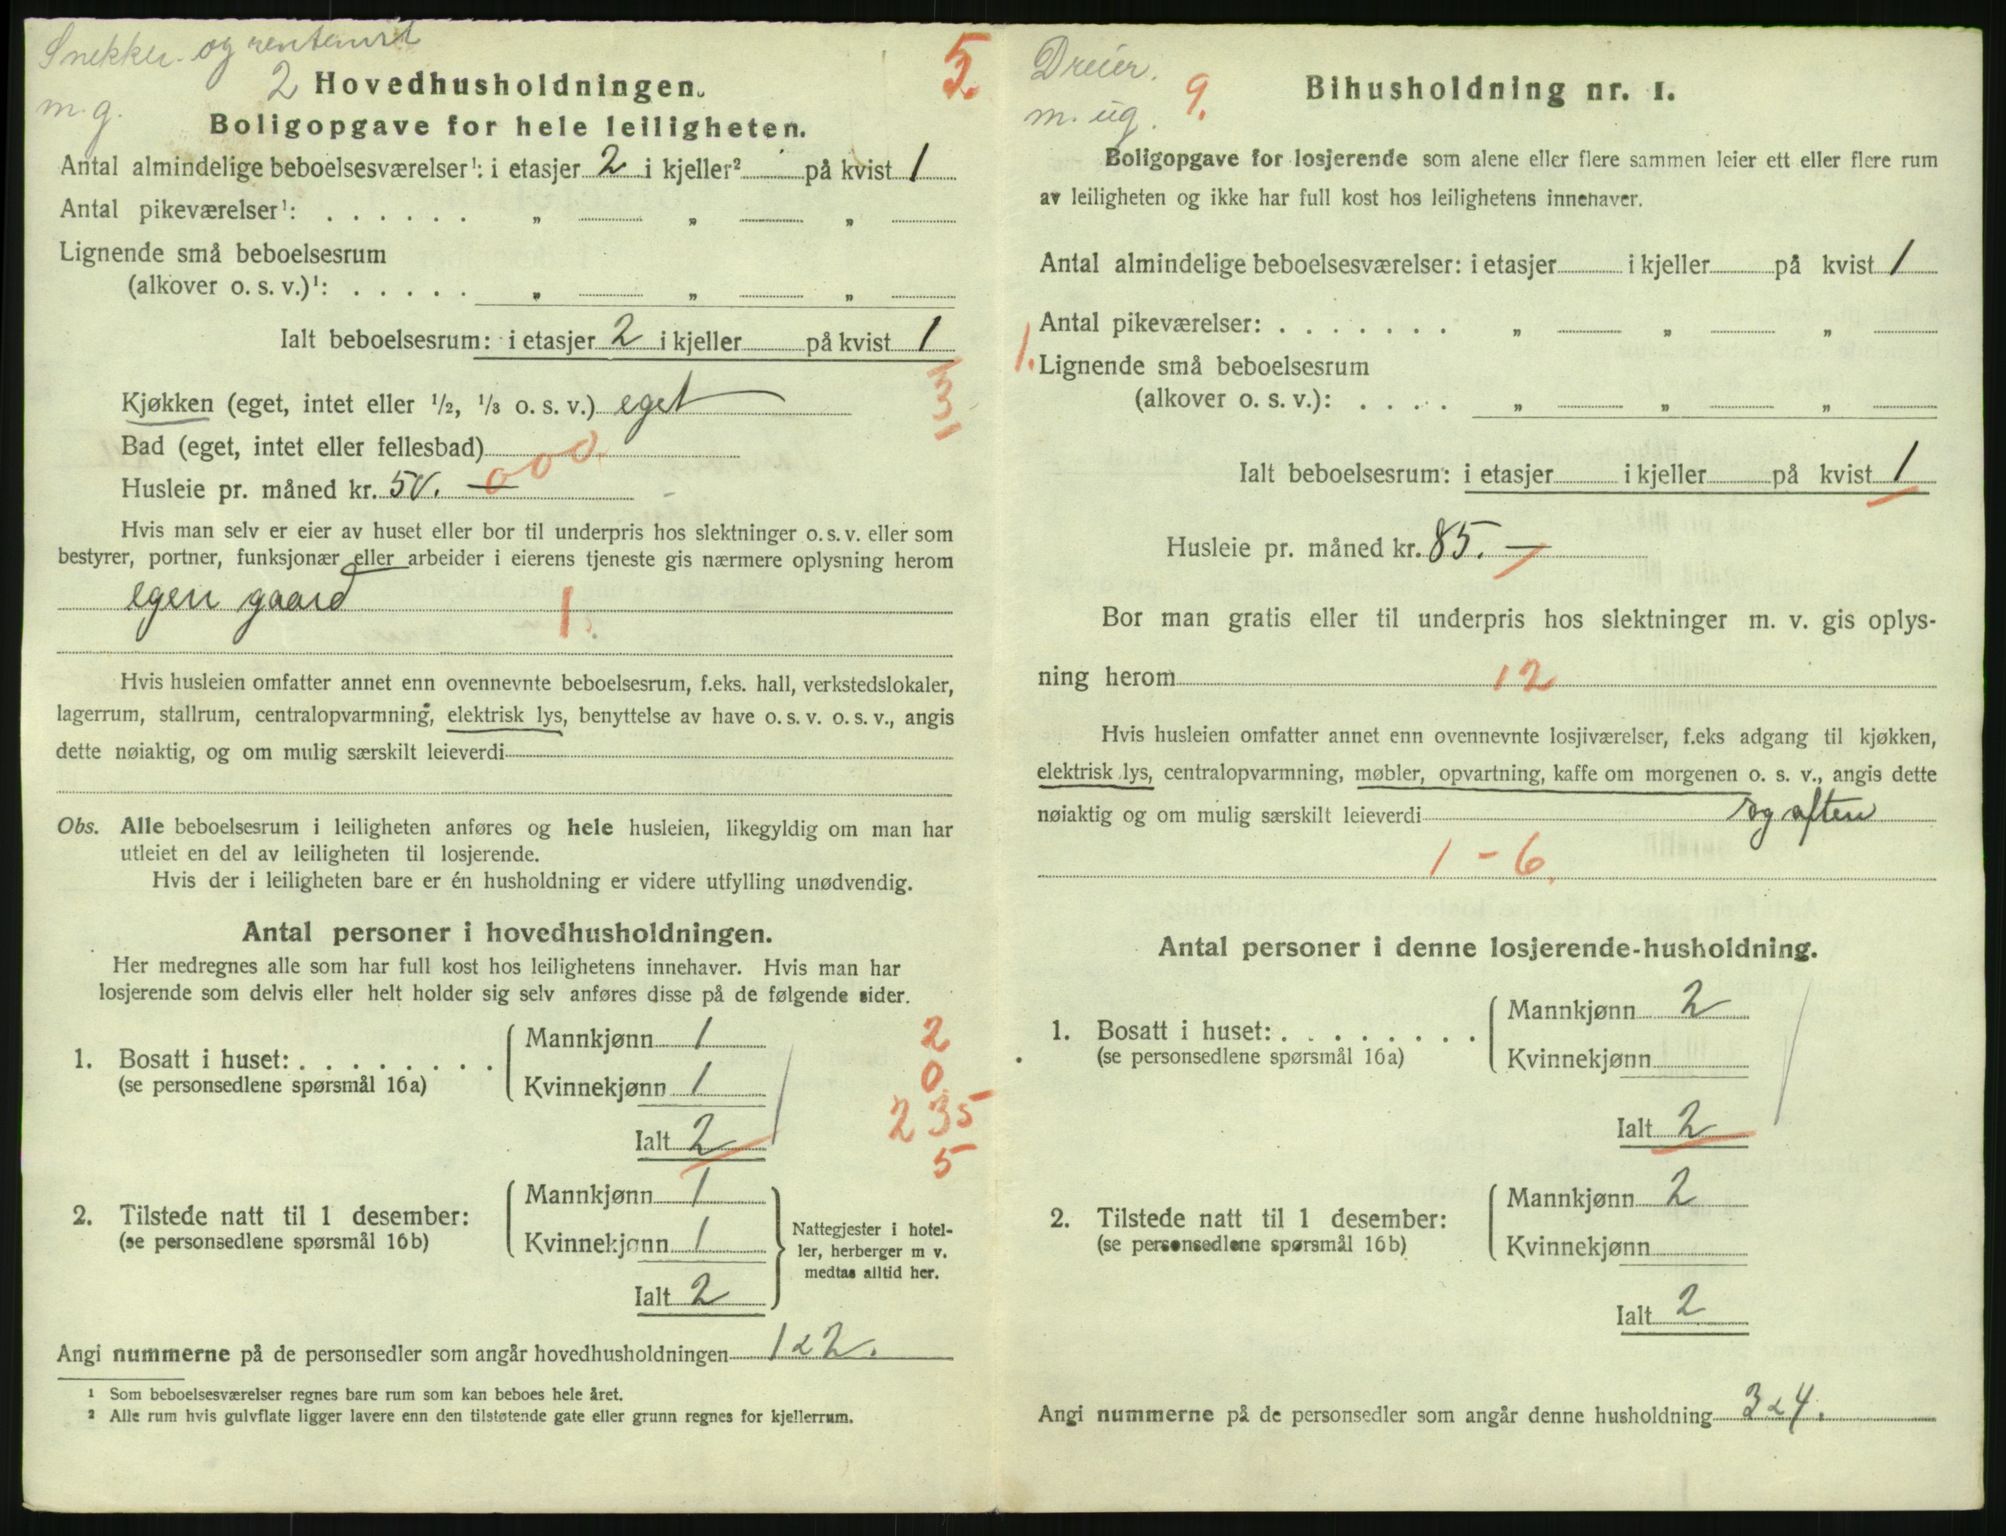 Snekker og rentenist
2 Hovedhusholdningen.
5
m. g.
Boligopgave for hele leiligheten.
Antal almindelige beboelsesværelser¹: i etasjer 2 i kjeller² på kvist 1
Antal pikeværelser¹: . . . . . . „ „ „
Lignende små beboelsesrum
(alkover o. s. v.)¹: . . . . . „ „ „
Ialt beboelsesrum: i etasjer 2 i kjeller på kvist 1
3
Kjøkken (eget, intet eller ½, ⅓ o. s. v.) eget
3
1
Bad (eget, intet eller fellesbad)
000
Husleie pr. måned kr. 50. —
Hvis man selv er eier av huset eller bor til underpris hos slektninger o. s. v. eller som
bestyrer, portner, funksjonær eller arbeider i eierens tjeneste gis nærmere oplysning herom
egen gaard
1.
Hvis husleien omfatter annet enn ovennevnte beboelsesrum, f.eks. hall, verkstedslokaler,
lagerrum, stallrum, centralopvarmning, elektrisk lys, benyttelse av have o. s. v. o. s. v., angis
dette nøiaktig, og om mulig særskilt leieverdi
Obs. Alle beboelsesrum i leiligheten anføres og hele husleien, likegyldig om man har
utleiet en del av leiligheten til losjerende.
Hvis der i leiligheten bare er én husholdning er videre utfylling unødvendig.
Antal personer i hovedhusholdningen.
Her medregnes alle som har full kost hos leilighetens innehaver. Hvis man har
losjerende som delvis eller helt holder sig selv anføres disse på de følgende sider.
Mannkjønn 1
2
1. Bosatt i huset: . . . . . . . .
(se personsedlene spørsmål 16a)
Kvinnekjønn 1
0
235
Ialt 2
5
Mannkjønn 1
2. Tilstede natt til 1 desember:
(se personsedlene spørsmål 16b)
Kvinnekjønn 1
Nattegjester i hotel-
ler, herberger m v.
medtas alltid her.
Ialt 2
Angi nummerne på de personsedler som angår hovedhusholdningen 1 & 2.
¹ Som beboelsesværelser regnes bare rum som kan beboes hele året.
² Alle rum hvis gulvflate ligger lavere enn den tilstøtende gate eller grunn regnes for kjellerrum.
Dreier.
m. ug.
9.
Bihusholdning nr. 1.
Boligopgave for losjerende som alene eller flere sammen leier ett eller flere rum
av leiligheten og ikke har full kost hos leilighetens innehaver.
Antal almindelige beboelsesværelser: i etasjer i kjeller på kvist 1
Antal pikeværelser: . . . . . . . „ „ „
1.
Lignende små beboelsesrum
(alkover o. s. v.): . . . . „ „ „
Ialt beboelsesrum: i etasjer i kjeller på kvist 1
Husleie pr. måned kr. 85. —
Bor man gratis eller til underpris hos slektninger m. v. gis oplys-
ning herom
12
Hvis husleien omfatter annet enn ovennevnte losjiværelser, f.eks adgang til kjøkken,
elektrisk lys, centralopvarmning, møbler, opvartning, kaffe om morgenen o. s. v., angis dette
nøiaktig og om mulig særskilt leieverdi og aften
1 - 6.
Antal personer i denne losjerende-husholdning.
Mannkjønn 2
1. Bosatt i huset: . . . . . . . .
(se personsedlene spørsmål 16a)
Kvinnekjønn
Ialt 2
Mannkjønn 2
2. Tilstede natt til 1 desember:
(se personsedlene spørsmål 16b)
Kvinnekjønn
Ialt 2
Angi nummerne på de personsedler som angår denne husholdning 3 & 4.